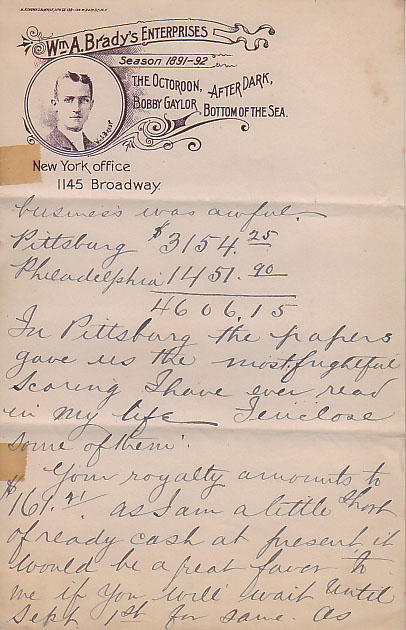 Wm A. Brady's Enterprises
Season 1891-92
The Octoroon, After Dark,
Bobby Gaylor, Bottom of the Sea.
New York office
1145 Broadway.
business was awful.
Pittsburg $3154.25
Philadelphia 1451.90
4606.15
In Pittsburg the papers
gave us the most frightful
scoring I have ever read
in my life – I enclose
some of them.
Your royalty amounts to
$161.21 as I am a little short
of ready cash at present it
would be a great favor to
me if you will wait until
Sept 1st for same. As